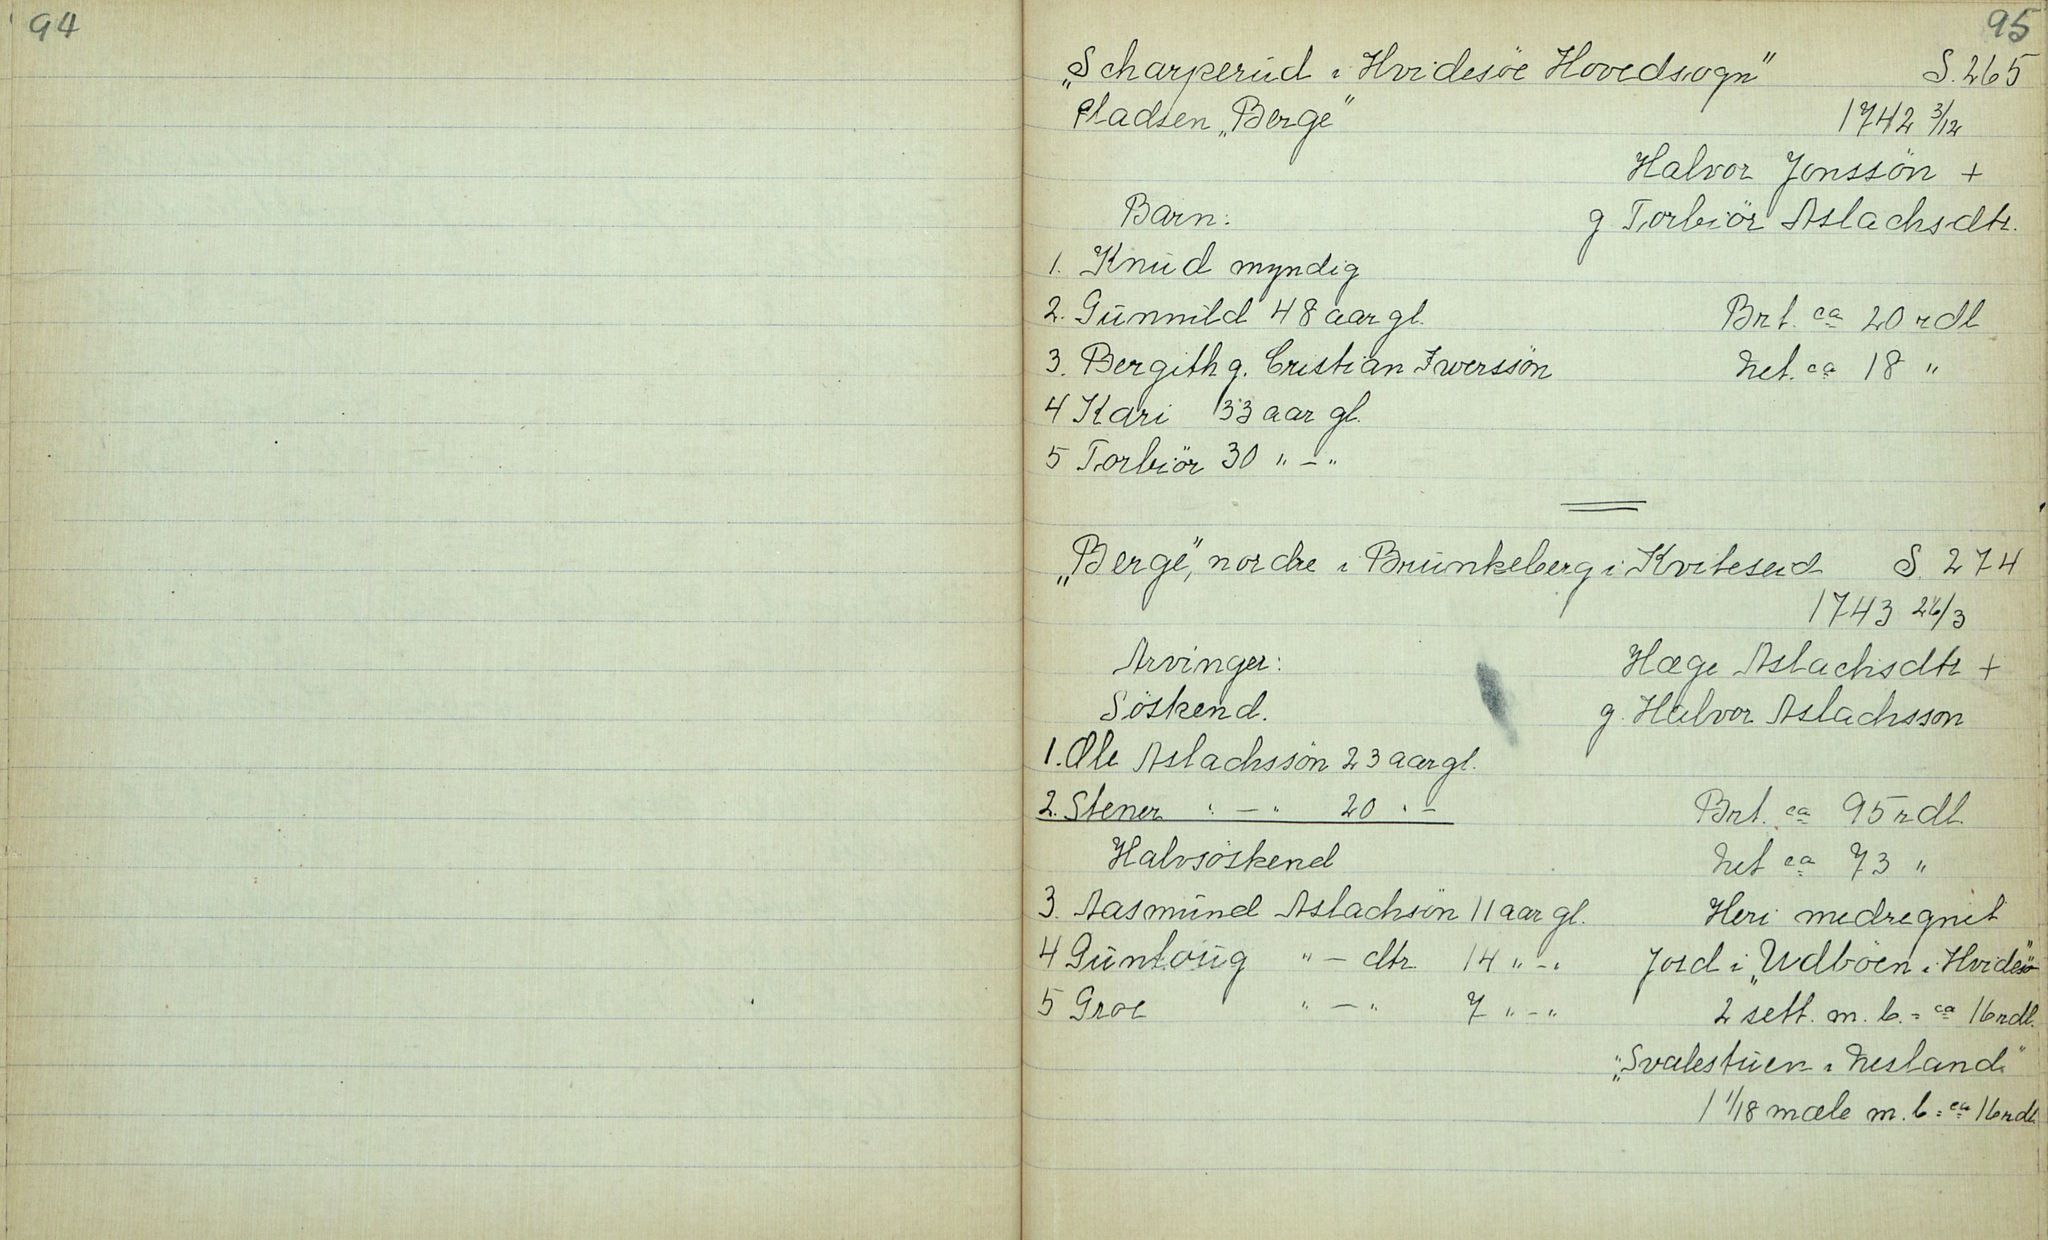 94
95
„Scharperud i Hvidesöe Hovedsogn" S. 265
Pladsen „Berge" 1742 3/12
Halvor Jonssön +
Barn: g. Torbiör Aslachsdtr.
1. Knud myndig
2. Gunnild 48 aar gl. Brt. ca 20 rdl
3. Bergith g. Cristian Iverssön Net. ca 18 "
4 Kari 33 aar gl.
5 Torbiör 30 " – "
„Berge", nordre i Brunkeberg i Kviteseid S. 274
1743 26/3
Arvinger: Hæge Aslachsdtr +
Söskend. g. Halvor Aslachsson
1. Ole Aslachssön 23 aar gl.
2. Stener " – " 20 " – Brt. ca 95 rdl.
Halvsöskend Net ca 73 "
3. Aasmund Aslachsön 11 aar gl. Heri medregnet
4 Guntoug " – dtr. 14 " – " Jord i „Udböen i Hvidesö"
5 Groe " – " 7 " – " 2 sett. m. b. = ca 16 rdl.
„Svalestuen i Nesland"
1 1/18 mæle m. b = ca 16 rdl.